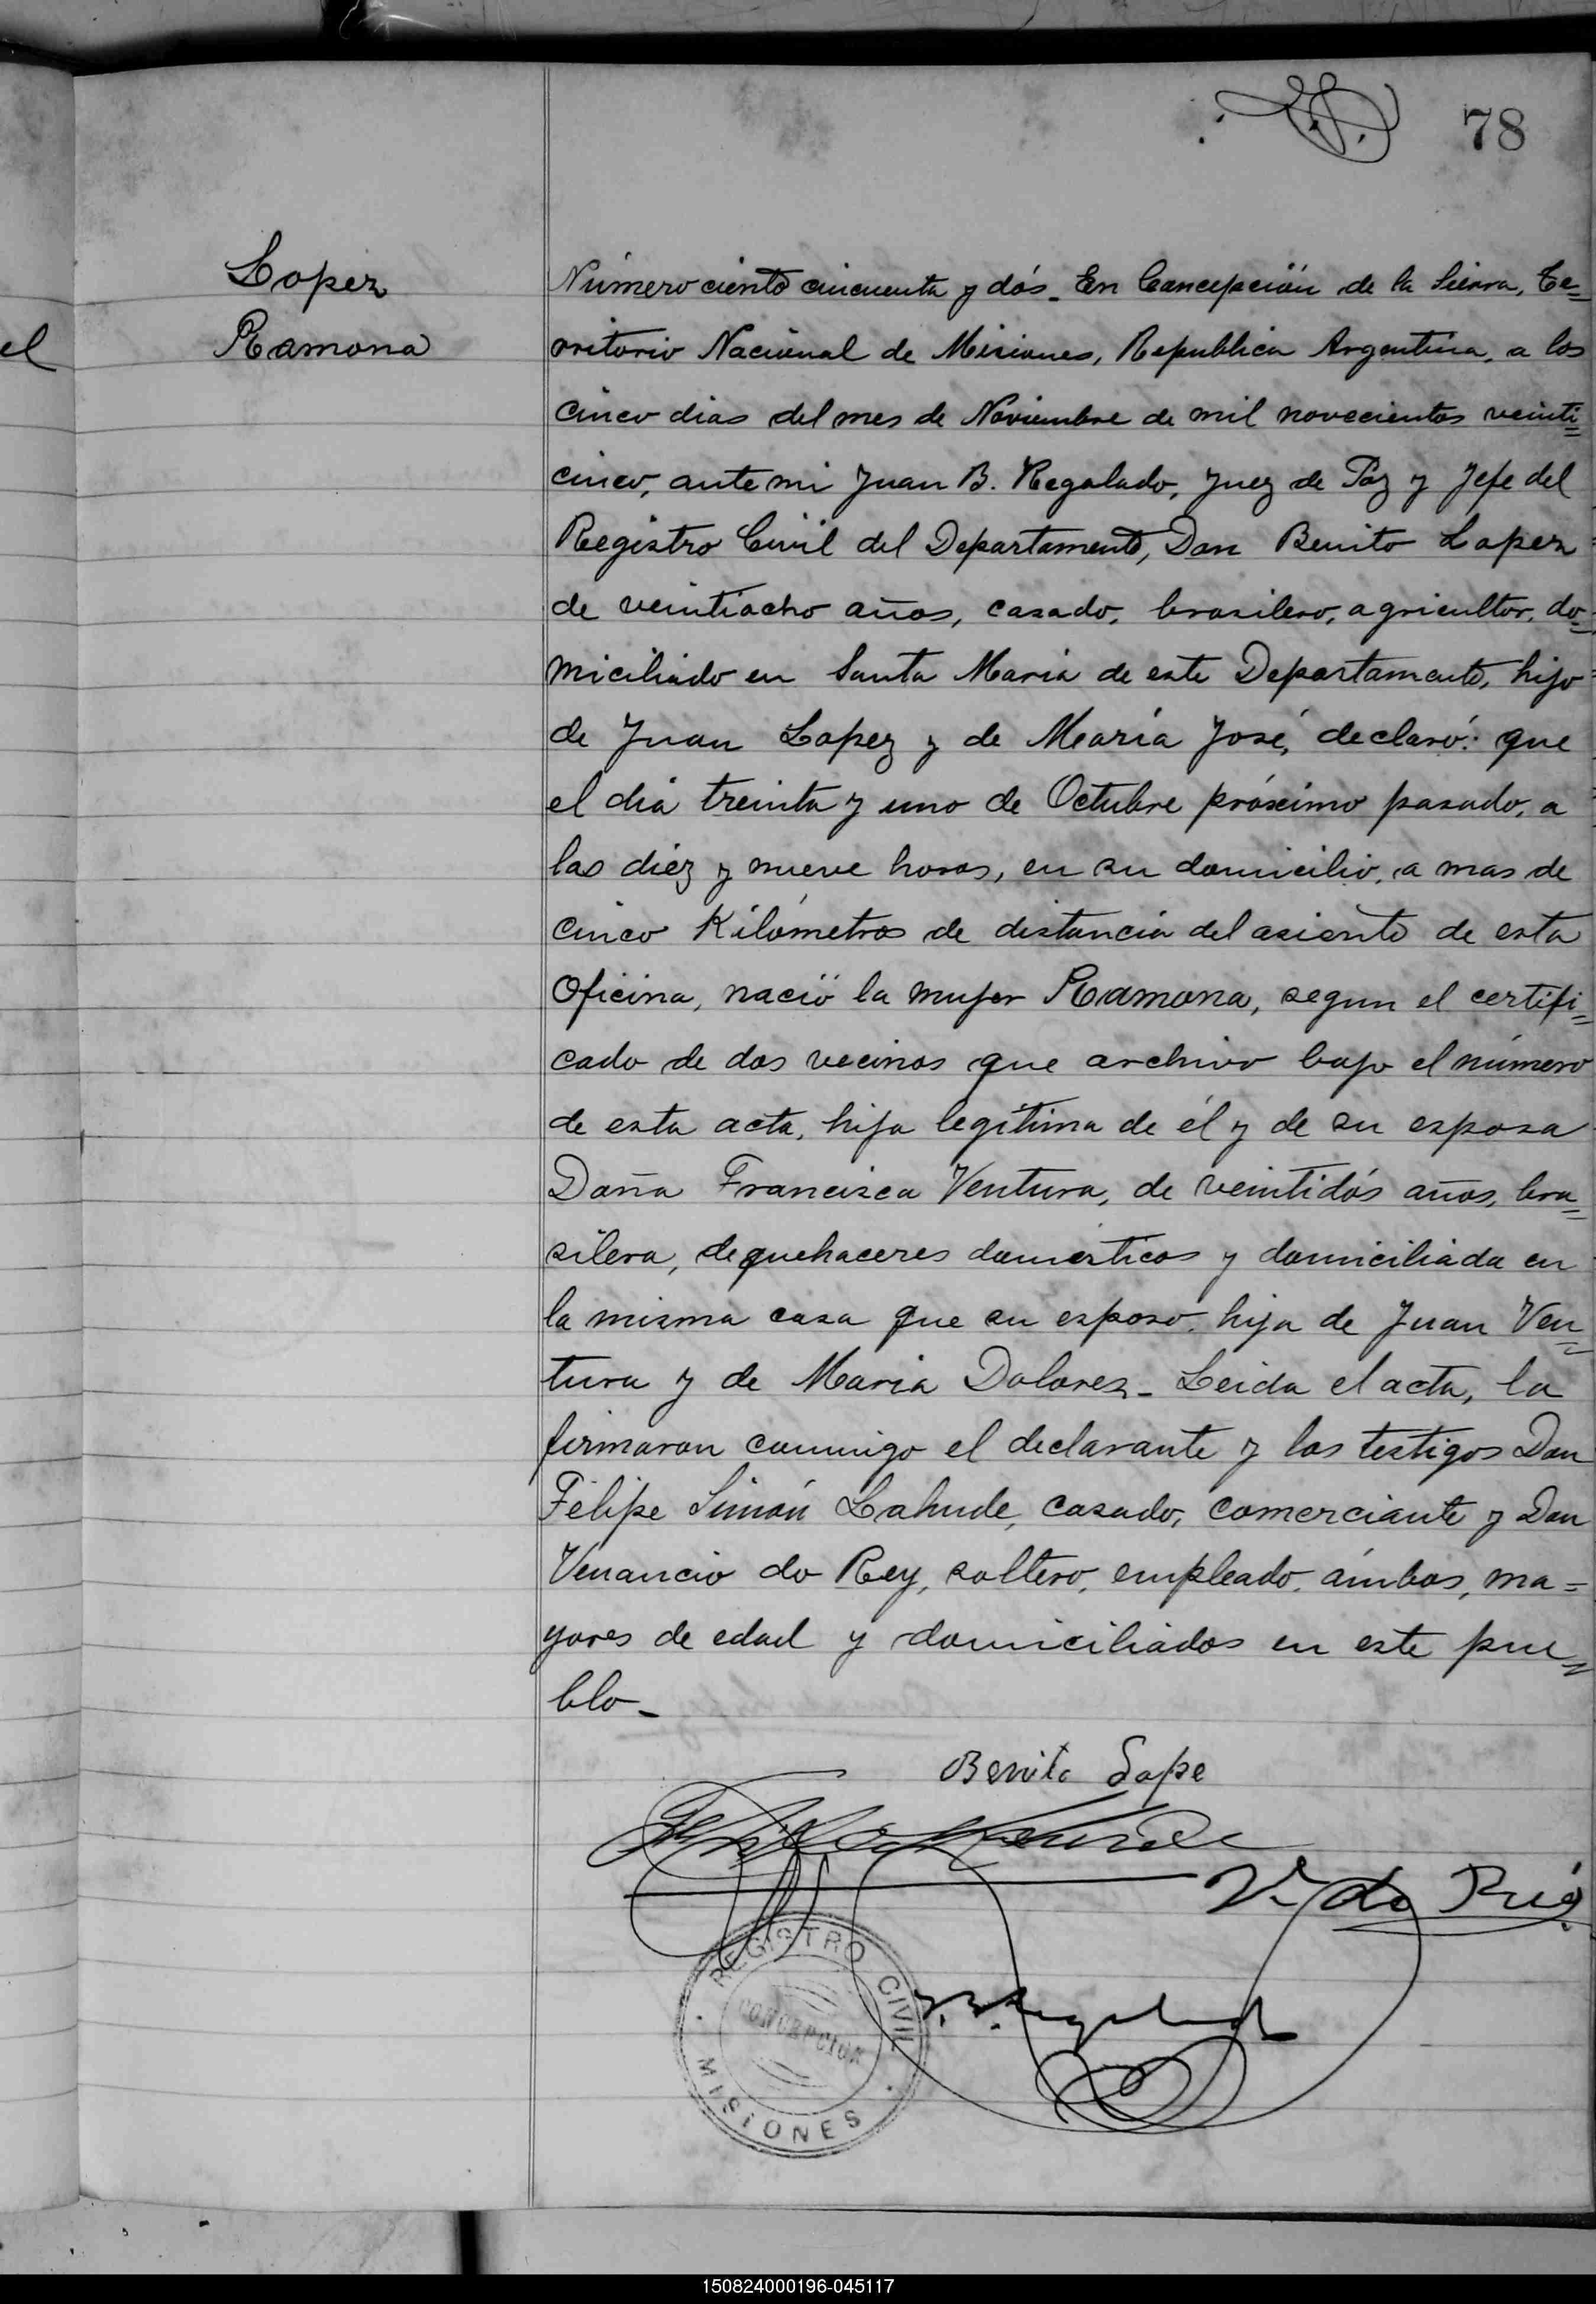 78
Lopez
Ramona
el
Número ciento cincuenta y dós_ En Concepción de la Sierra, Te=
rritorio Nacional de Misiones, Republica Argentina, a los
cinco dias del mes de Noviembre de mil novecientos veinti=
cinco, ante mi Juan B. Regalado, Juez de Paz y Jefe del
Registro Civil del Departamento, Don Benito Lopez
de veintiocho años, casado, brasilero, agricultor, do=
miciliado en Santa Maria de este Departamento, hijo
de Juan Lopez y de María José, declaró: que
el dia treinta y uno de Octubre próximo pasado, a
las diez y nueve horas, en su domicilio, a mas de
cinco Kilómetros de distancia del asiento de esta
Oficina, nació la mujer Ramona, segun el certifi=
cado de dos vecinos que archivo bajo el número
de esta acta, hija legítima de él y de su esposa
Doña Francisca Ventura, de veintidós años, bra=
silera, de quehaceres domésticos y domiciliada en
la misma casa que su esposo, hija de Juan Ven=
tura y de Maria Dolores_ Leida el acta, la
firmaron conmigo el declarante y los testigos Don
Felipe Simón Lahude, casado, comerciante y Don
Venancio do Rey, soltero, empleado, ámbos, ma=
yores de edad y domiciliados en este pue=
blo_
Benito Lope
V. do Rey
J. B. Regalado
REGISTRO CIVIL
CONCEPCION
MISIONES
150824000196-045117